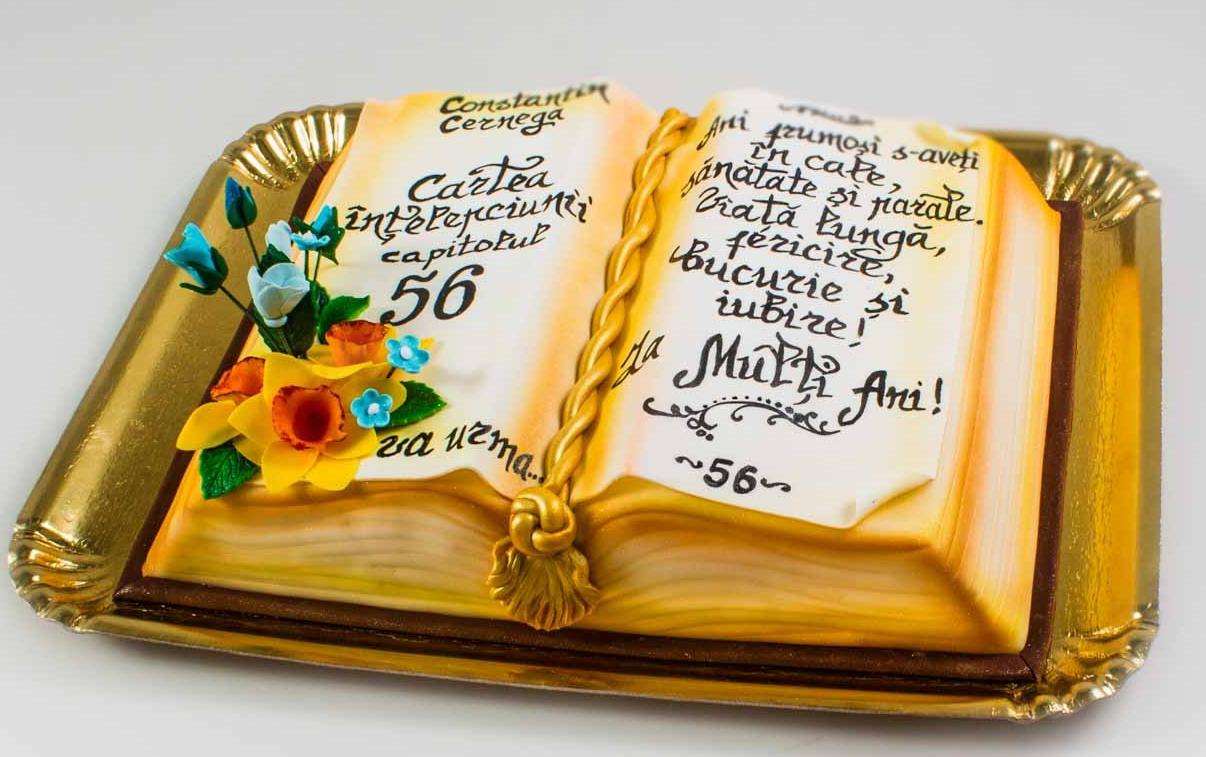 Constantin
Cernega
Cartea
înțelepciunii
capitolul
56
va urma...
Ani frumoși s-aveți
în cale,
sănătate și parale.
Viață lungă,
fericire,
Bucurie și
iubire!
La Mulți Ani!
~56~